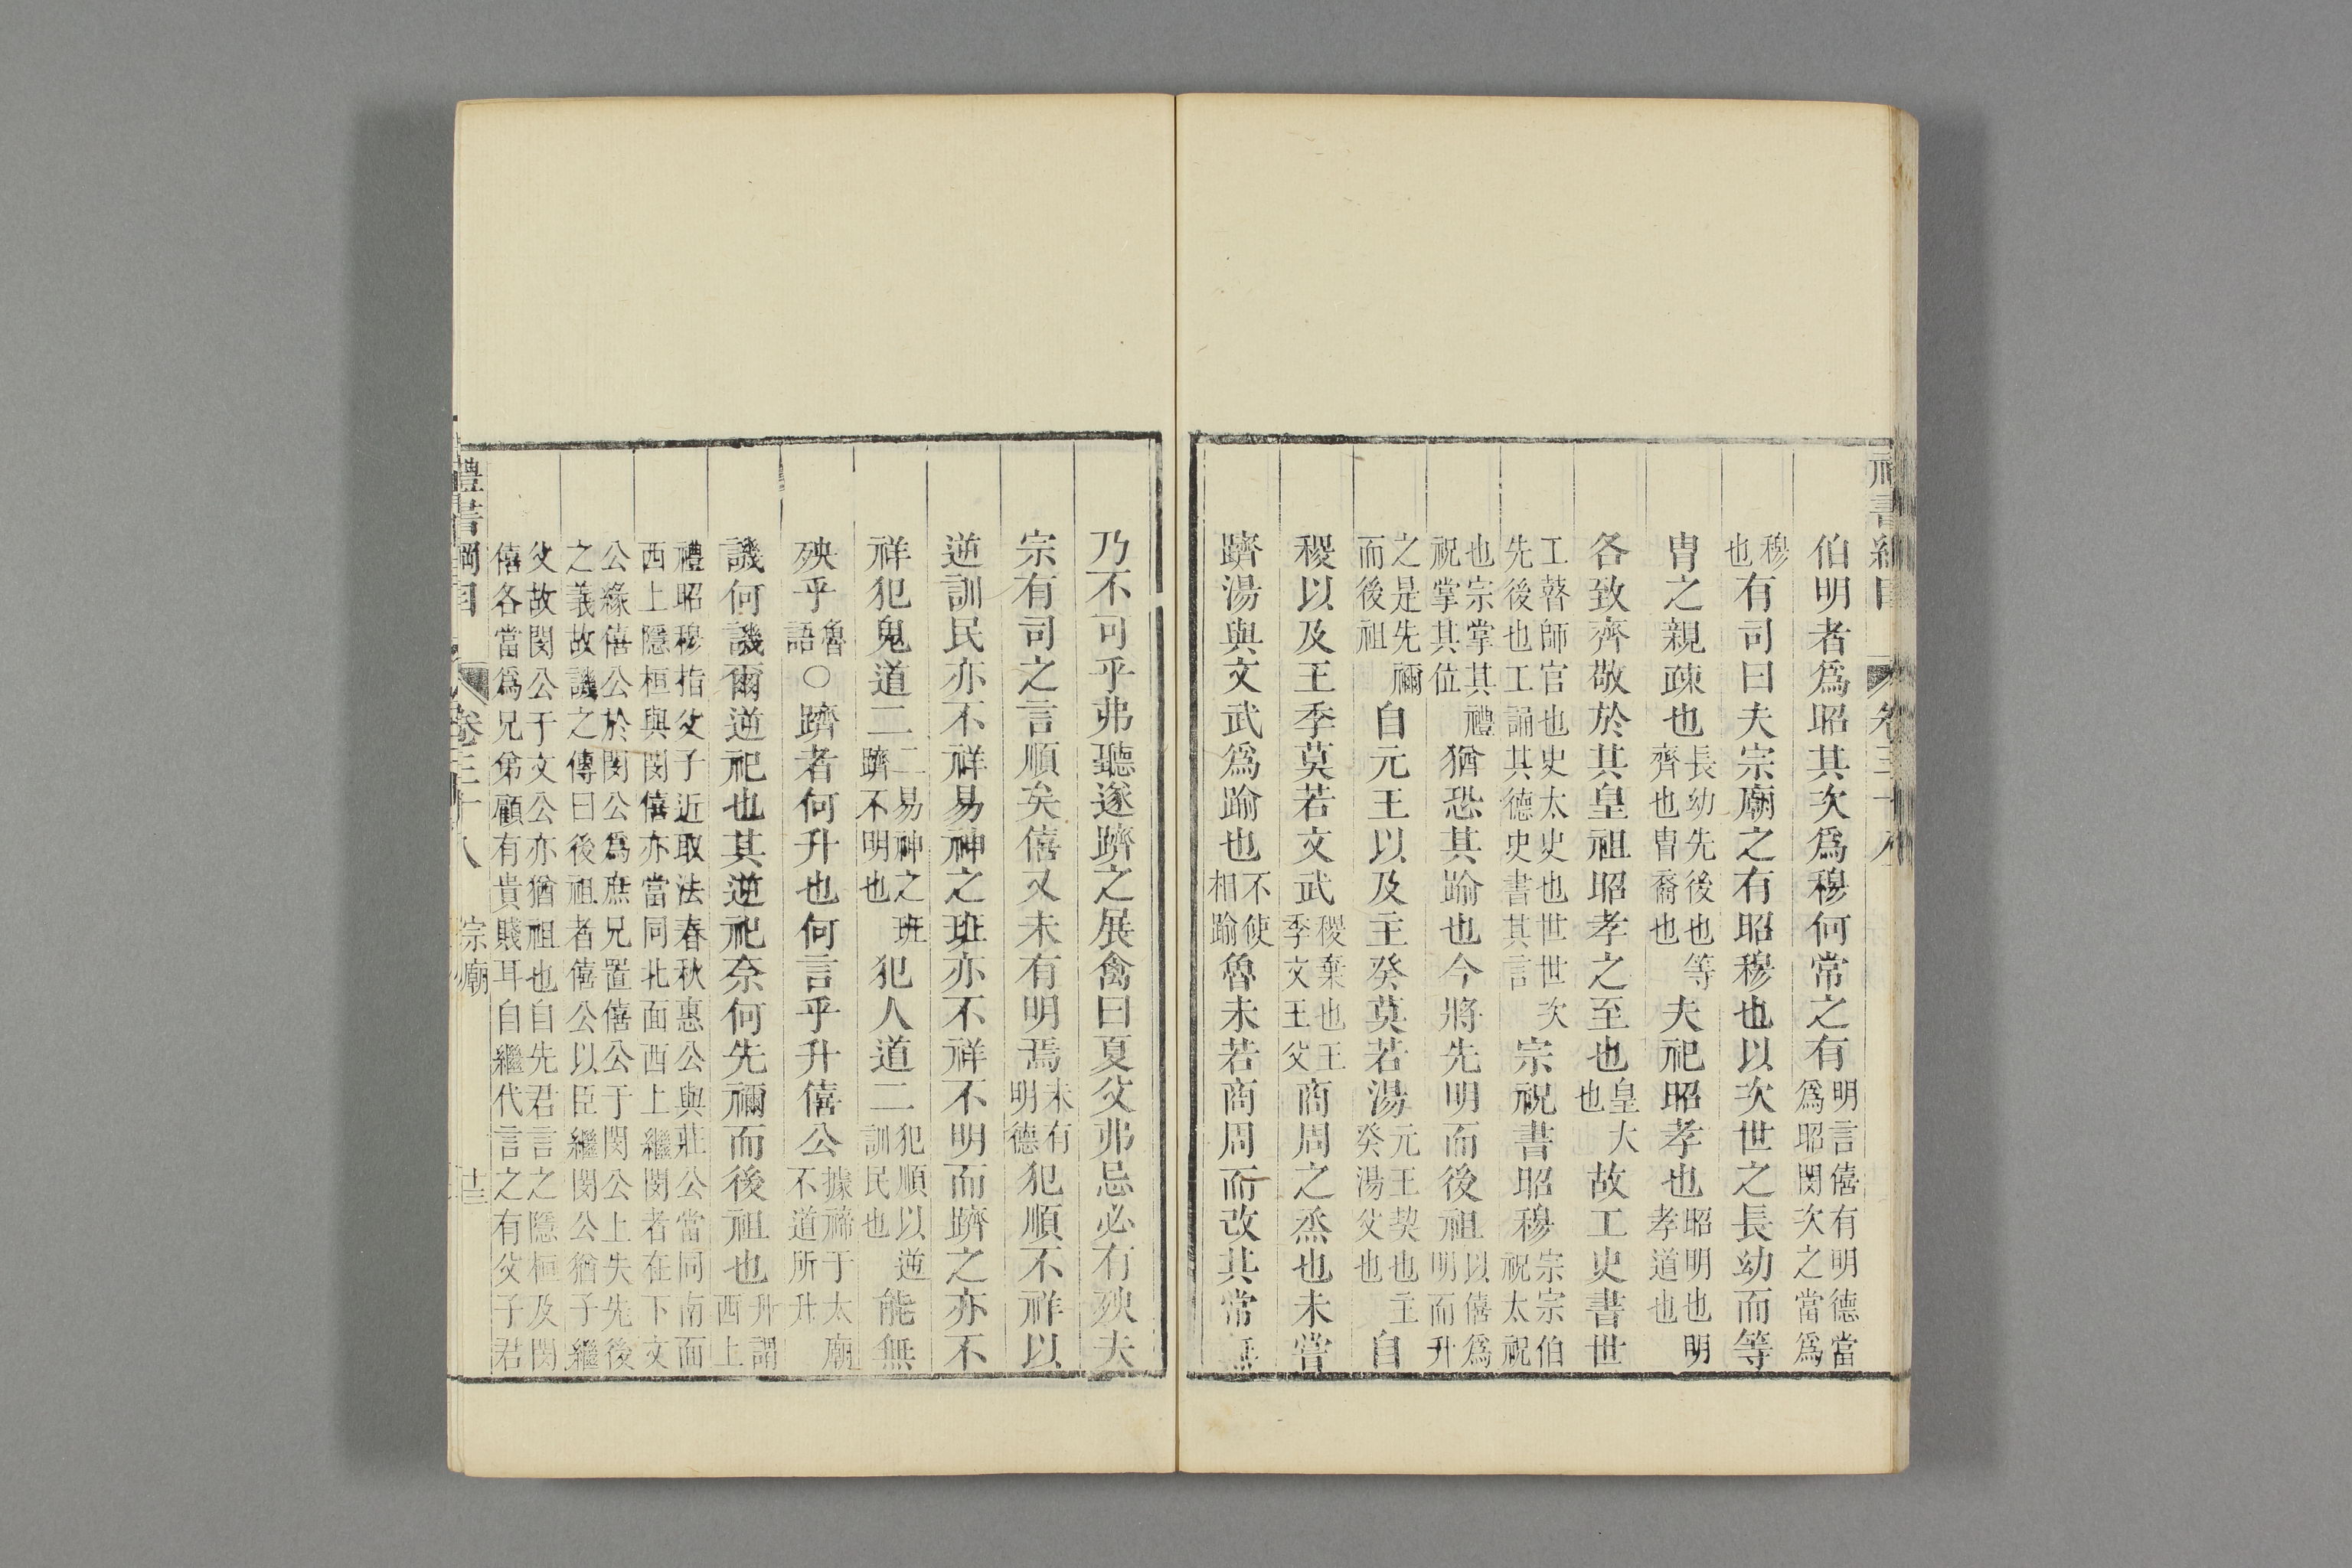 禮書綱目　卷三十八
伯明者爲昭其次爲穆何常之有明言僖有明德當爲昭閔次之當爲
穆也有司曰夫宗廟之有昭穆也以次世之長幼而等
胄之親疎也長幼先後也等齊也胄裔也夫祀昭孝也昭明也明孝道也
各致齊敬於其皇祖昭孝之至也皇大也故工史書世
工瞽師官也史太史也世世次先後也工誦其德史書其言宗祝書昭穆宗宗伯祝太祝
也宗掌其禮祝掌其位猶恐其踰也今將先明而後祖以僖爲明而升
之是先禰而後祖自元王以及主癸莫若湯元王契也主癸湯父也自
稷以及王季莫若文武稷棄也王季文王父商周之烝也未嘗
躋湯與文武爲踰也不使相踰魯未若商周而改其常無
乃不可乎弗聽遂躋之展禽曰夏父弗忌必有殃夫
宗有司之言順矣僖又未有明焉未有明德犯順不祥以
逆訓民亦不祥易神之班亦不祥不明而躋之亦不
祥犯鬼道二二易神之班躋不明也犯人道二犯順以逆訓民也能無
殃乎魯語○躋者何升也何言乎升僖公據禘于太廟不道所升
譏何譏爾逆祀也其逆祀奈何先禰而後祖也升謂西上
禮昭穆指父子近取法春秋惠公與莊公當同南面西上隱桓與閔僖亦當同北面西上繼閔者在下文
公緣僖公於閔公爲庶兄置僖公于閔公上失先後之義故譏之傳曰後祖者僖公以臣繼閔公猶子繼
父故閔公于文公亦猶祖也自先君言之隱桓及閔僖各當爲兄弟顧有貴賤耳自繼代言之有父子君
禮書綱目　卷三十八　宗廟　十三